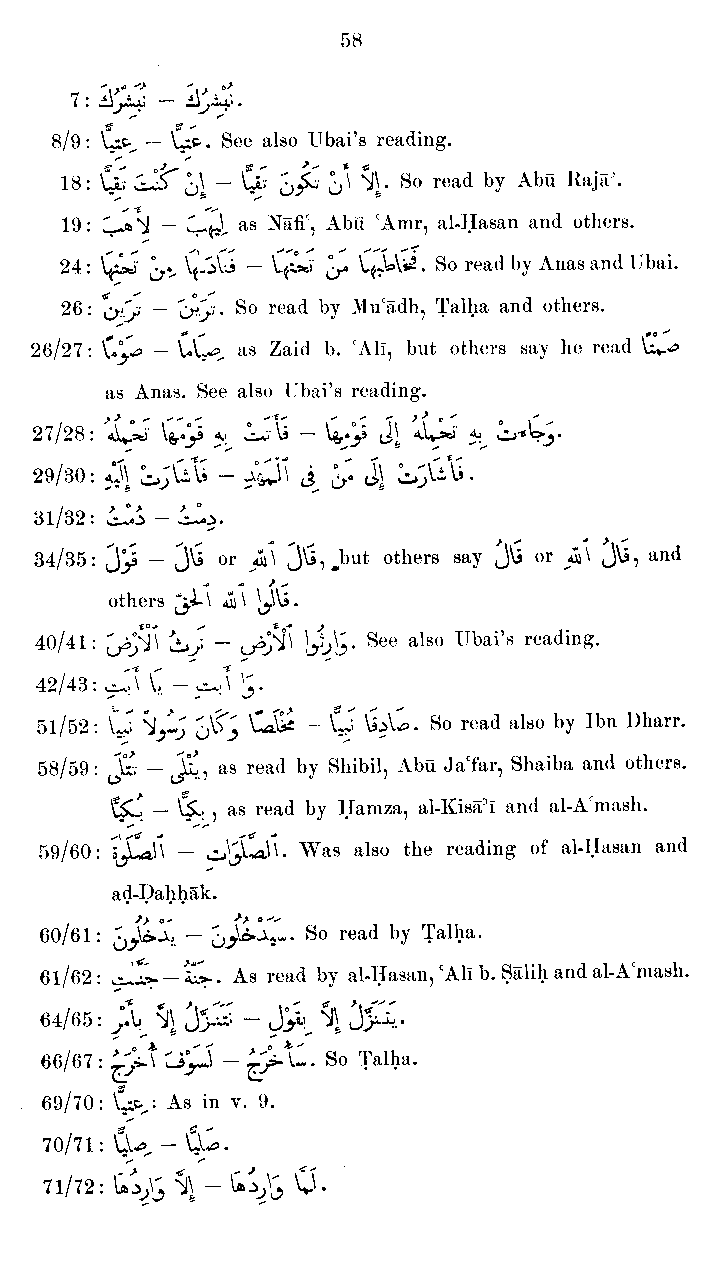 58
7: نُبَشِّرُكَ — نَبْشُرُكَ.
8/9: عِتِيًّا — عَتِيًّا. See also Ubai's reading.
18: إِنْ كُنْتَ تَقِيًّا — إِلَّا أَنْ تَكُونَ تَقِيًّا. So read by Abū Rajā'.
19: لِأَهَبَ — لِيَهَبَ as Nāfiʿ, Abū ʿAmr, al-Ḥasan and others.
24: فَنَادَىٰهَا مِنْ تَحْتِهَا — فَخَاطَبَهَا مَنْ تَحْتَهَا. So read by Anas and Ubai.
26: تَرَيِنَّ — تَرَيْنَ. So read by Muʿādh, Ṭalḥa and others.
26/27: صَوْمًا — صِيَامًا as Zaid b. ʿAlī, but others say he read صَمْتًا
as Anas. See also Ubai's reading.
27/28: فَأَتَتْ بِهِ قَوْمَهَا تَحْمِلُهُ — وَجَاءَتْ بِهِ تَحْمِلُهُ إِلَى قَوْمِهَا.
29/30: فَأَشَارَتْ إِلَيْهِ — فَأَشَارَتْ إِلَى مَنْ فِى ٱلْمَهْدِ.
31/32: دُمْتُ — دِمْتُ.
34/35: قَوْلَ — قَالَ or قَالَ ٱللّٰهِ, but others say قَالُ or قَالُ ٱللّٰهِ, and
others قَالُوا ٱللّٰه ٱلحَقّ.
40/41: نَرِثُ ٱلْأَرْضَ — وَارِثُوا ٱلْأَرْضِ. See also Ubai's reading.
42/43: يَا أَبَتِ — وَا أَبَتِ.
51/52: مُخْلَصًا وَكَانَ رَسُولًا نَبِيًّا — صَادِقًا نَبِيًّا. So read also by Ibn Dharr.
58/59: تُتْلَى — يُتْلَى, as read by Shibil, Abū Jaʿfar, Shaiba and others.
بُكِيًّا — بِكِيًّا, as read by Ḥamza, al-Kisā'ī and al-Aʿmash.
59/60: ٱلصَّلَوٰةَ — ٱلصَّلَوَاتِ. Was also the reading of al-Ḥasan and
aḍ-Ḍaḥḥāk.
60/61: يَدْخُلُونَ — سَيَدْخُلُونَ. So read by Ṭalḥa.
61/62: جَنَّٰتِ — جَنَّةُ. As read by al-Ḥasan, ʿAlī b. Ṣāliḥ and al-Aʿmash.
64/65: نَتَنَزَّلُ إِلَّا بِأَمْرِ — يَتَنَزَّلُ إِلَّا بِقَوْلِ.
66/67: لَسَوْفَ أُخْرَجُ — سَأُخْرَجُ. So Ṭalḥa.
69/70: عِتِيًّا: As in v. 9.
70/71: صِلِيًّا — صَلِيًّا.
71/72: إِلَّا وَارِدُهَا — لَمَّا وَارِدُهَا.